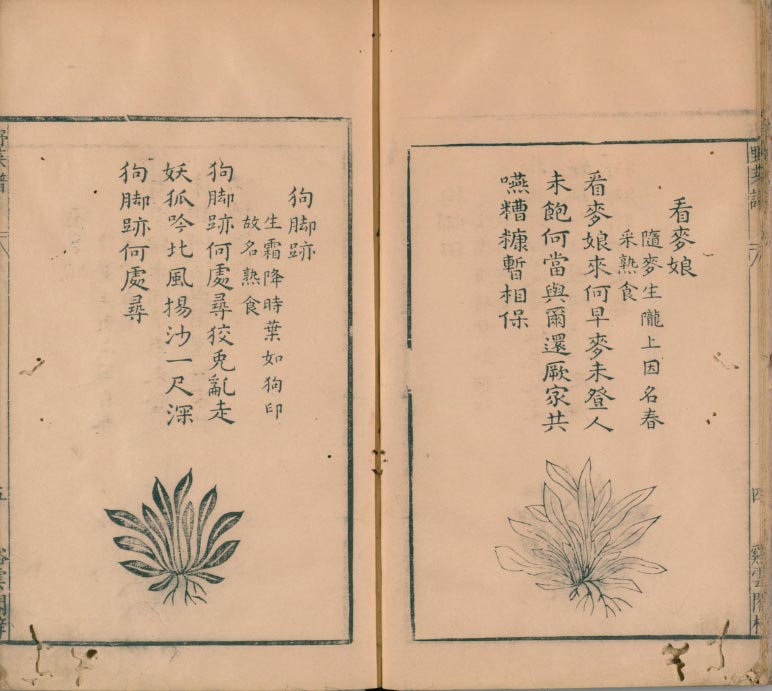 看麥娘
隨麥生隴上因名春
采熟食
看麥娘來何早麥未登人
未飽何當與爾還厥家共
嚥糟糠暫相保
四
狗脚跡
生霜降時葉如狗印
故名熟食
狗脚跡何處尋狡兎亂走
妖狐吟北風揚沙一尺深
狗脚跡何處尋
五